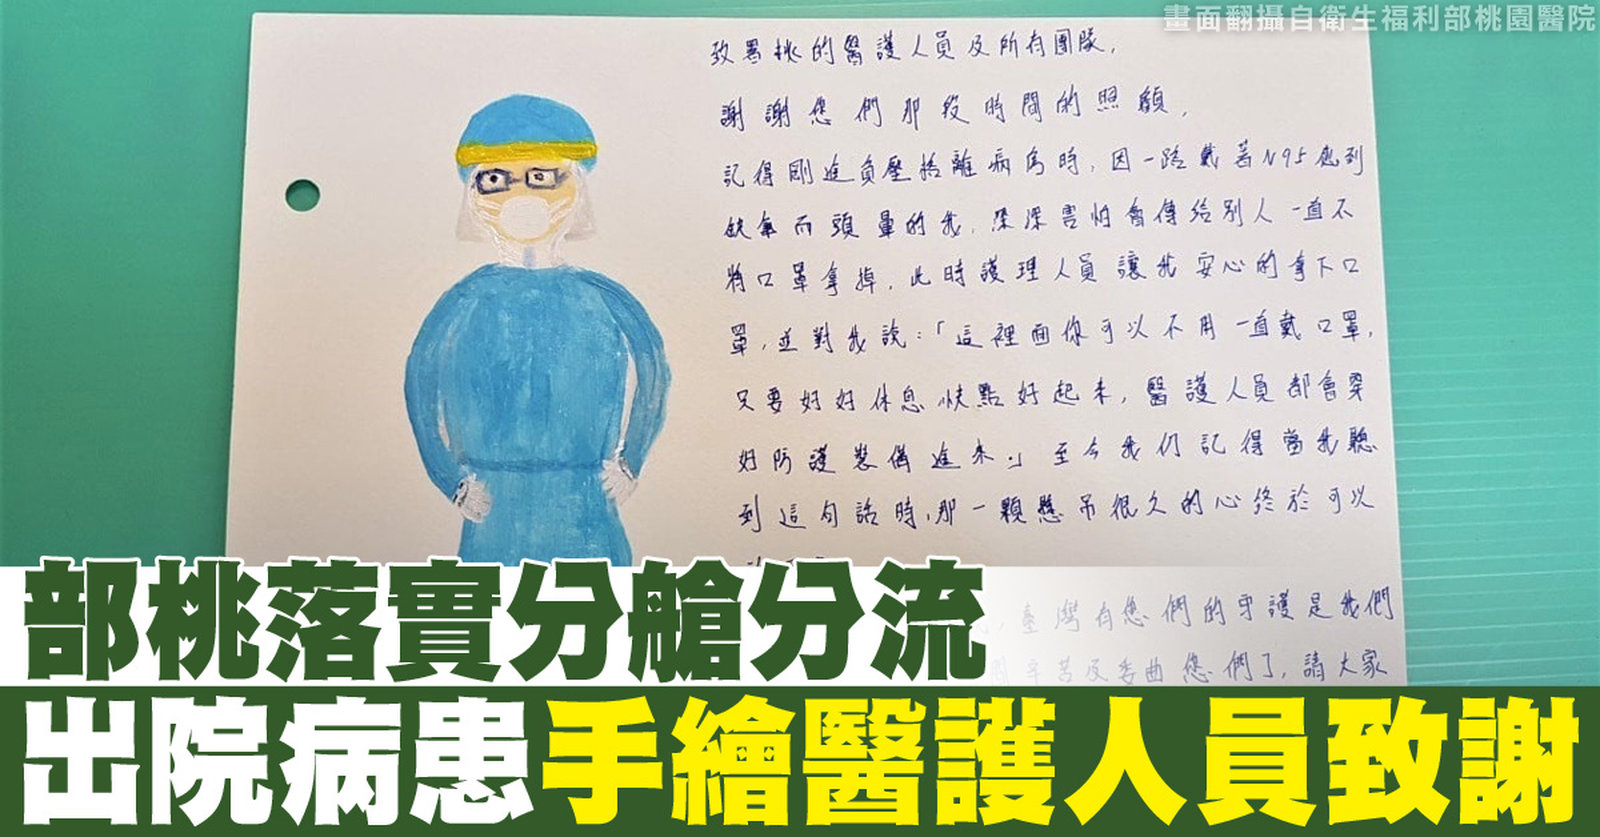 畫面翻攝自衛生福利部桃園醫院
致署桃的醫護人員及所有團隊,
謝謝您們那段時間的照顧,
記得剛進負壓隔離病房時,因一路戴著N95感到
缺氧而頭暈的我,深深害怕會傳給別人一直不
將口罩拿掉,此時護理人員讓我安心的拿下口
罩,並對我說:「這裡面你可以不用一直戴口罩,
只要好好休息快點好起來,醫護人員都會穿
好防護裝備進來。」至今我仍記得當我聽
到這句話時,那一顆懸吊很久的心終於可以
臺灣有您們的守護是我們
辛苦及委曲您們了,請大家
部桃落實分艙分流
出院病患手繪醫護人員致謝